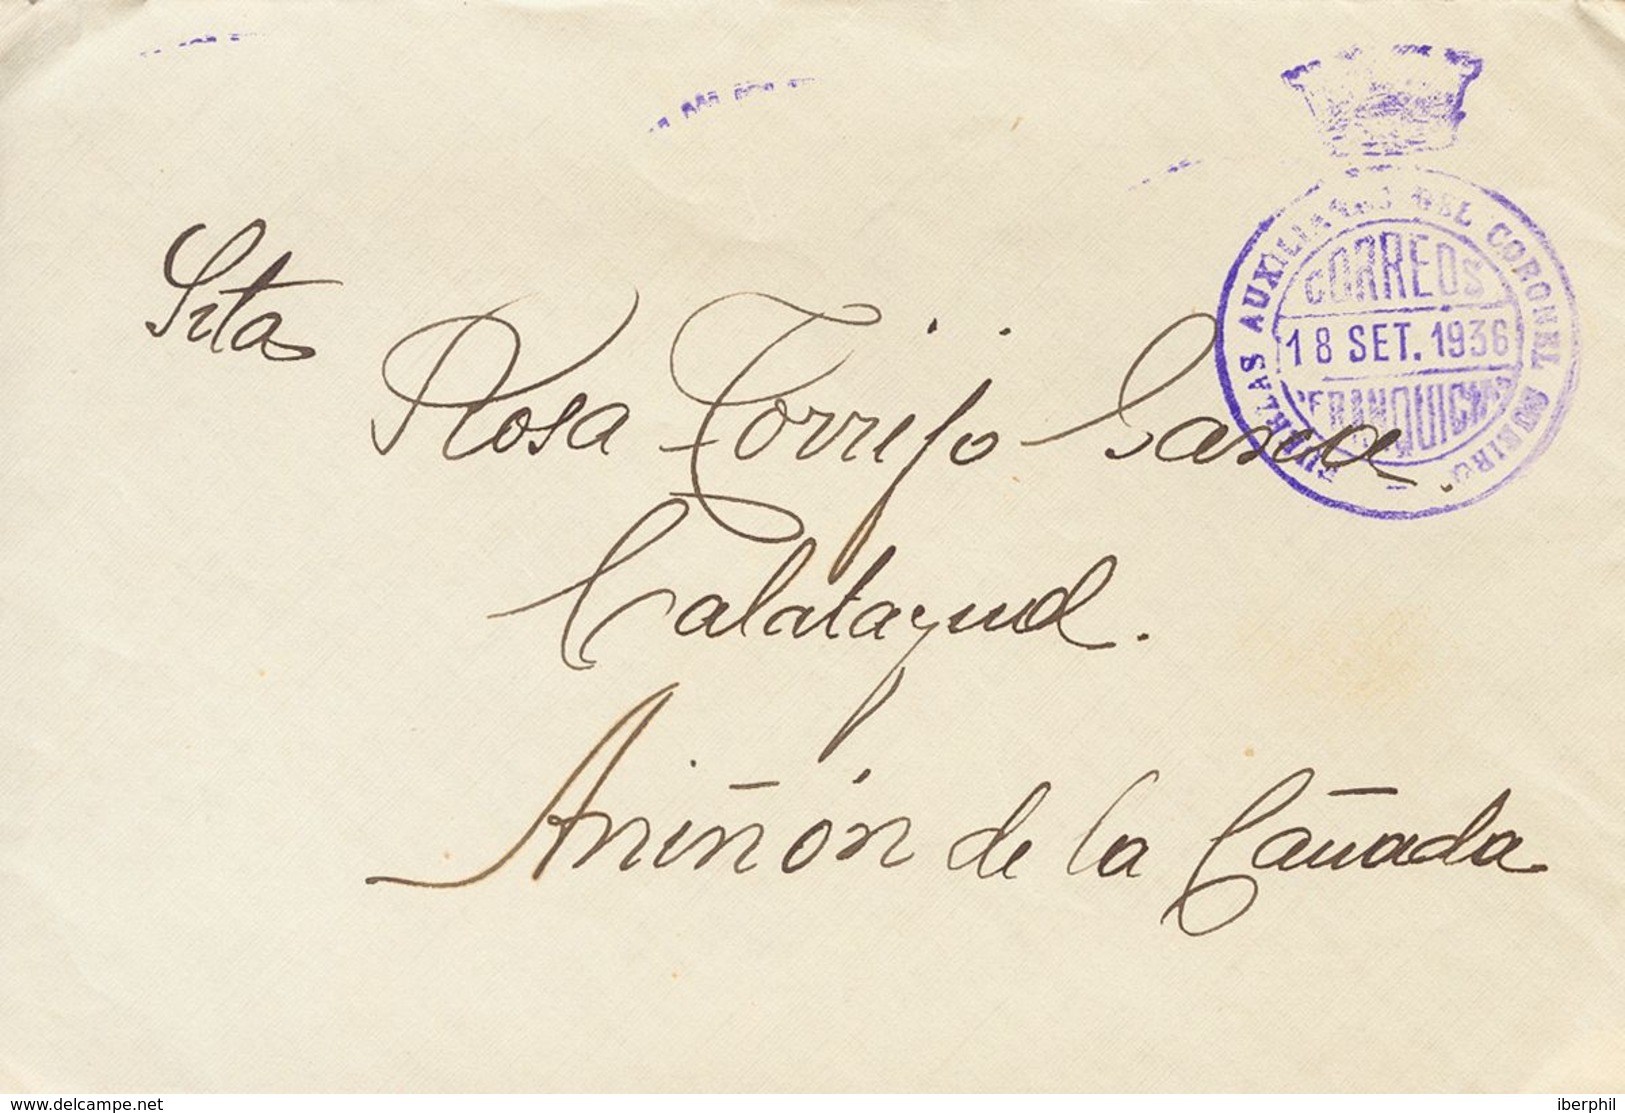 AUXILIARES DEL CORONEL
CORREOS
18 SET. 1936
Srta
Rosa Torrijo Garcia
Calatayud.
Aniñón de la Cañada
www.delcampe.net
iberphil